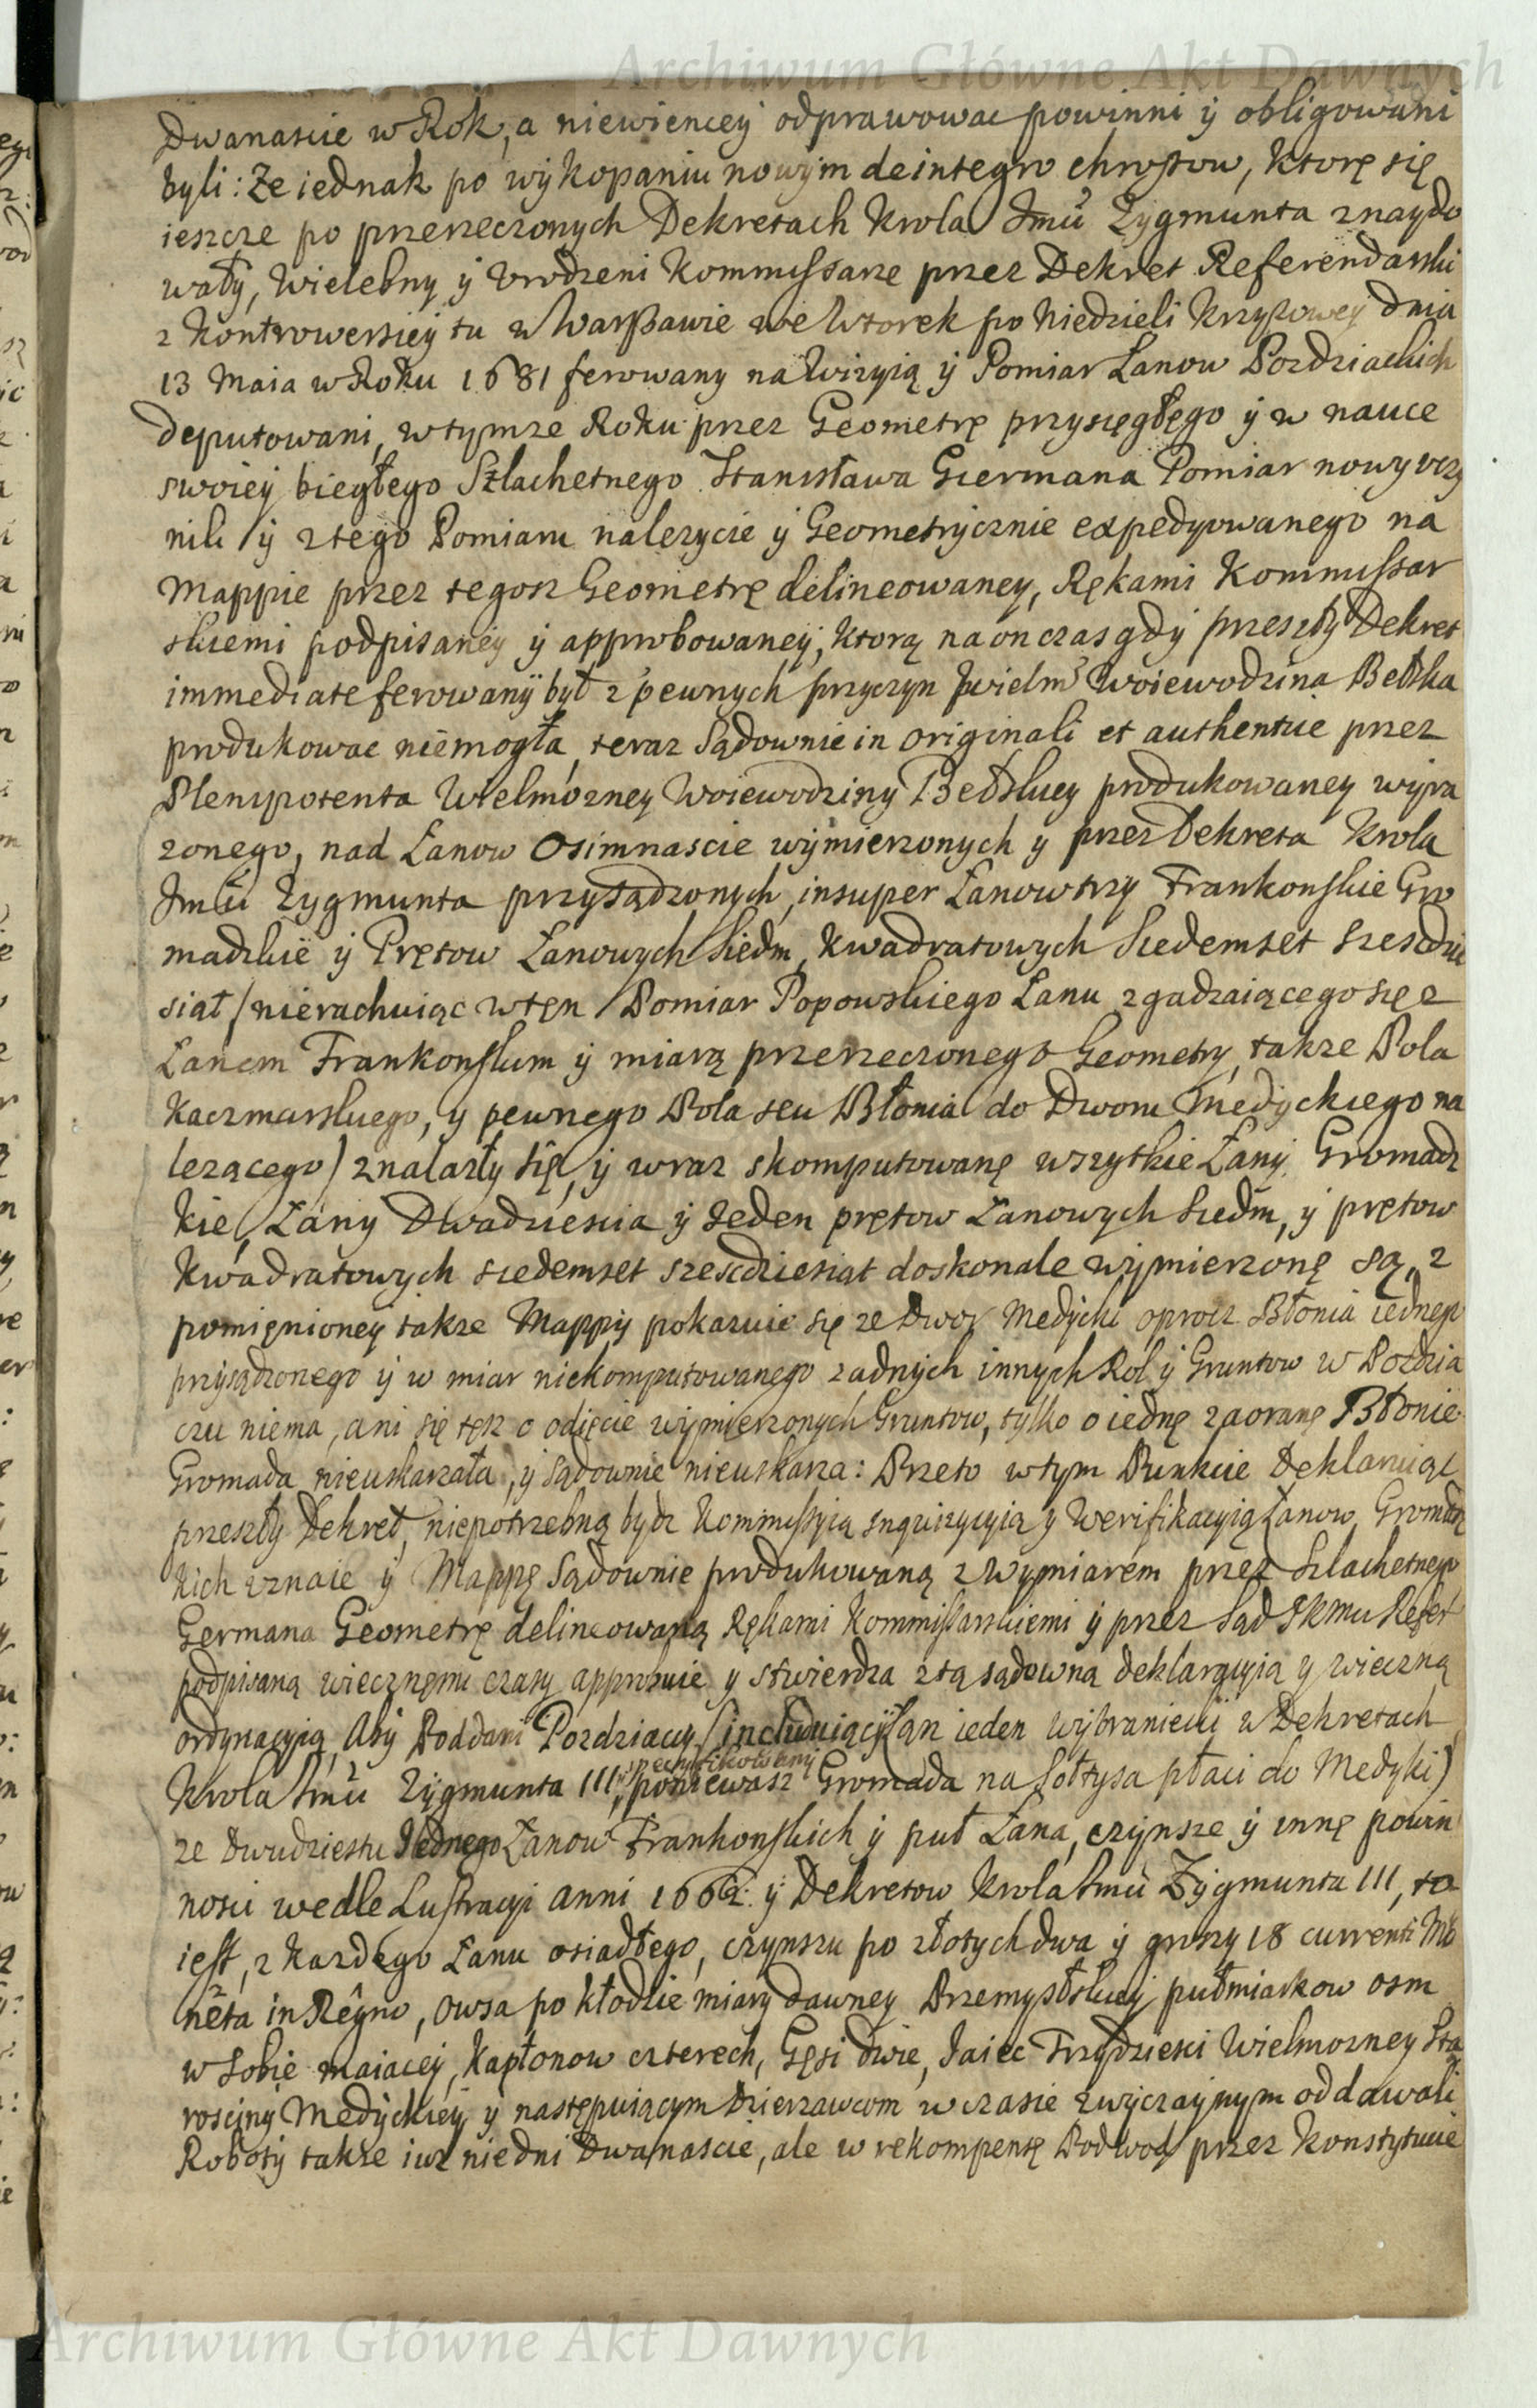 Archiwum Główne Akt Dawnych
Dwanascie w Rok, a niewiencey odprawowac powinni ÿ obligowani
byli: Ze iednak po wÿkopaniu nowÿm deintegro chrostow, ktorę się
ieszcze po przerzeczonych Dekretach Krola Jmči Zygmunta znaydo
wałÿ, Wielebny ÿ Vrodzeni Kommissarze przez Dekret Referendarski
z Kontrowersiey tu w Warszawie we Wtorek po Niedzieli Krzyżowey dnia
13 Maia w Roku 1681 ferowany na Wizyią ÿ Pomiar Łanow Pozdziackich
deputowani, wtymze Roku przez Geometrę przysięgłęgo ÿ w nauce
swoiey biegłego Szlachetnego Stanisława Giermana Pomiar nowy vczy
nili ÿ z tego Pomiaru nalezycie ÿ Geometrÿcznie expedyowanego na
Mappie przez tegosz Geometrę delineowaney, Rękami Kommissar
skiemi podpisaney ÿ approbowaneÿ, ktorą na on czas gdÿ przeszłÿ Dekret
immediate ferowanÿ był z pewnych przyczyn Jwielm Woiewodzina Bełska
produkowac niemogła, teraz Sądownie in originali et authentice przez
Plenipotenta Wielmozney Woiewodzinÿ Bełskiey produkowaney wyra
zonego, nad Łanow Osimnascie wÿmierzonych y przez Dekreta Krola
Jmči Zygmunta przysądzonych, insuper Łanow trzy Frankonskie Gro
madzkie ÿ Prętow Łanowych siedm, kwadratowych siedemset szescdzie
siąt /nierachuiąc wtęn Pomiar Popowskiego Łanu zgadzaiącego się z
Łanem Frankonskim ÿ miarą przerzeczonego Geometry, takze Pola
Kaczmarskiego, y pewnego Pola seu Błonia do Dworu Medyckiego na
lezącego/ znalazłÿ się, ÿ wraz skomputowanę wszytkie Łany Gromadz
kie, Łany Dwadziescia ÿ Jeden prętow Łanowych siedm, ÿ prętow
kwadratowych siedemset szescdziesiąt doskonale wÿmierzonę są, z
pomięnioney takze Mappÿ pokazuie się ze Dwor Medÿcki oprocz Błonia iednego
przysądzonego ÿ w miar niekomputowanego zadnÿch innych Rol ÿ Gruntow w Pozdzia
czu niema, ani się tęsz o odięcie wÿmierzonych Gruntow, tÿlko o iednę zaoranę Błonie
Gromada nieuskarzała, ÿ sądownie nieuskarza: Przeto wtym Punkcie Deklaruiąc
przeszłÿ Dekret, niepotrzebną bydz Kommissyią Inquizycyią ÿ Werifikacyią Łanow Gromadz
kich vznaie ÿ Mappę Sądownie produkowaną z wymiarem przez Szlachetnego
Germana Geometrę delineowaną Rękami Kommissarskiemi ÿ przez Sąd JKMci Refer
podpisaną wiecznęmi czasÿ approbuie ÿ stwierdza z tą sądowną deklaracyią ÿ wieczną
ordynacyią, Abÿ Poddani Pozdziaccy /includuiącÿ Łan ieden wÿbraniecki w Dekretach
specyfikowany
Krola Jmči Zÿgmunta III, poniewasz Gromada na Sołtysa płaci do Medyki/
ze dwudziestu Jednego Łanow Frankonskich ÿ puł Łana, czÿnsze ÿ innę powin
nosci wedle Lustracyi anni 1662. ÿ Dekretow Krola Jmči Zÿgmunta III, to
iest, z kazdego Łanu osiadłego, czÿnszu po złotych dwa ÿ groszy 18 currenti Mo
neta in Regno, owsa po kłodzie miary dawney Przemysłskieÿ pułmiarkow osm
w sobie maiącej, kapłonow czterech, Gęsi dwie, Jaiec Trzÿdziesci Wielmozney Sta
roscinÿ Medÿckieÿ ÿ następuiącym Dzierzawcom w czasie zwÿczaÿnym oddawali
Robotÿ takze iuz nie dni Dwanascie, ale w rekompensę Podwod przez Konstytucie
Archiwum Główne Akt Dawnych